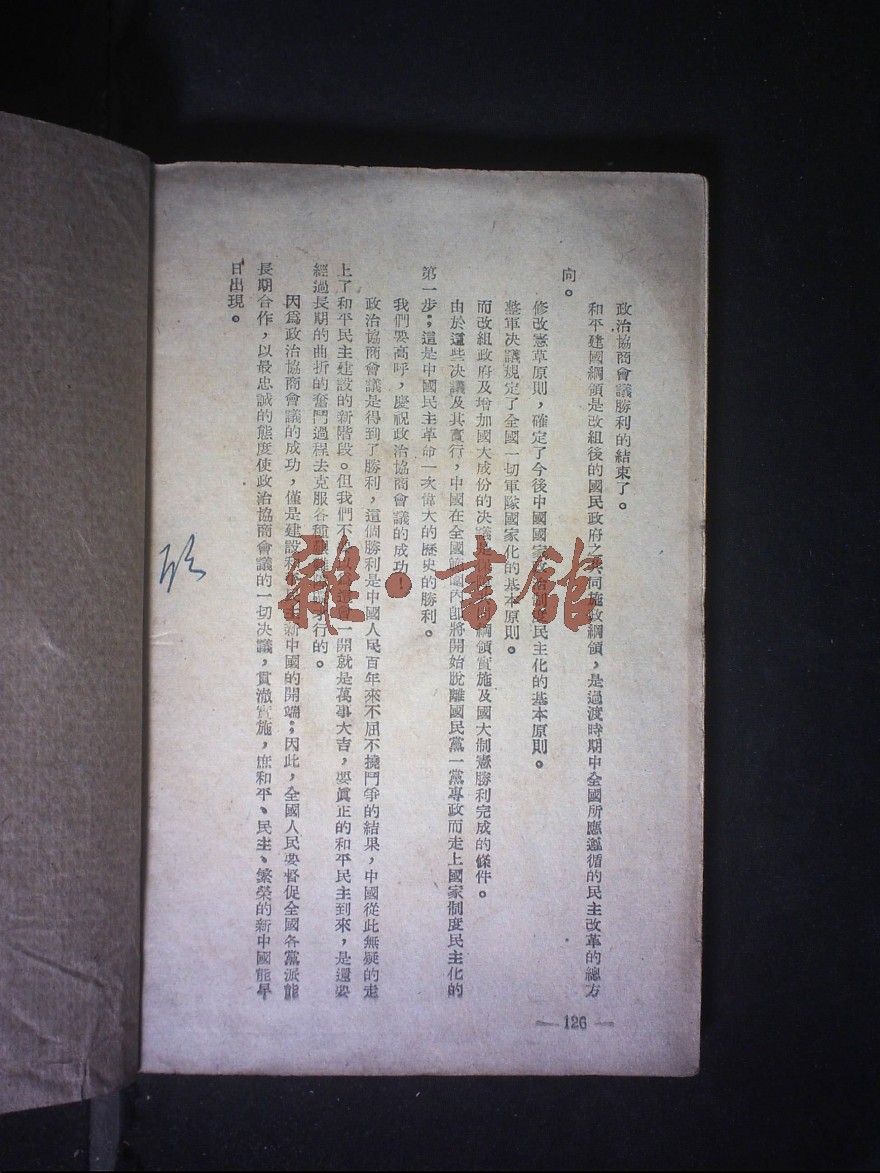 政治協商會議勝利的結束了。
和平建國綱領是改組後的國民政府之共同施政綱領，是過渡時期中全國所應遵循的民主改革的總方
向。
修改憲草原則，確定了今後中國國家政治制度民主化的基本原則。
整軍決議規定了全國一切軍隊國家化的基本原則。
而改組政府及增加國大成份的決議是 綱領實施及國大制憲勝利完成的條件。
由於這些決議及其實行，中國在全國範圍內卽將開始脫離國民黨一黨專政而走上國家制度民主化的
第一步；這是中國民主革命一次偉大的歷史的勝利。
我們要高呼，慶祝政治協商會議的成功！
政治協商會議是得到了勝利，這個勝利是中國人民百年來不屈不撓鬥爭的結果，中國從此無疑的走
上了和平民主建設的新階段。但我們不 一開就是萬事大吉，要眞正的和平民主到來，是還要
經過長期的曲折的奮鬥過程去克服各種 行的。
因爲政治協商會議的成功，僅是建設 新中國的開端；因此，全國人民要督促全國各黨派能
長期合作，以最忠誠的態度使政治協商會議的一切決議，貫澈實施，庶和平、民主、繁榮的新中國能早
日出現。
— 126 —
雜·書舘